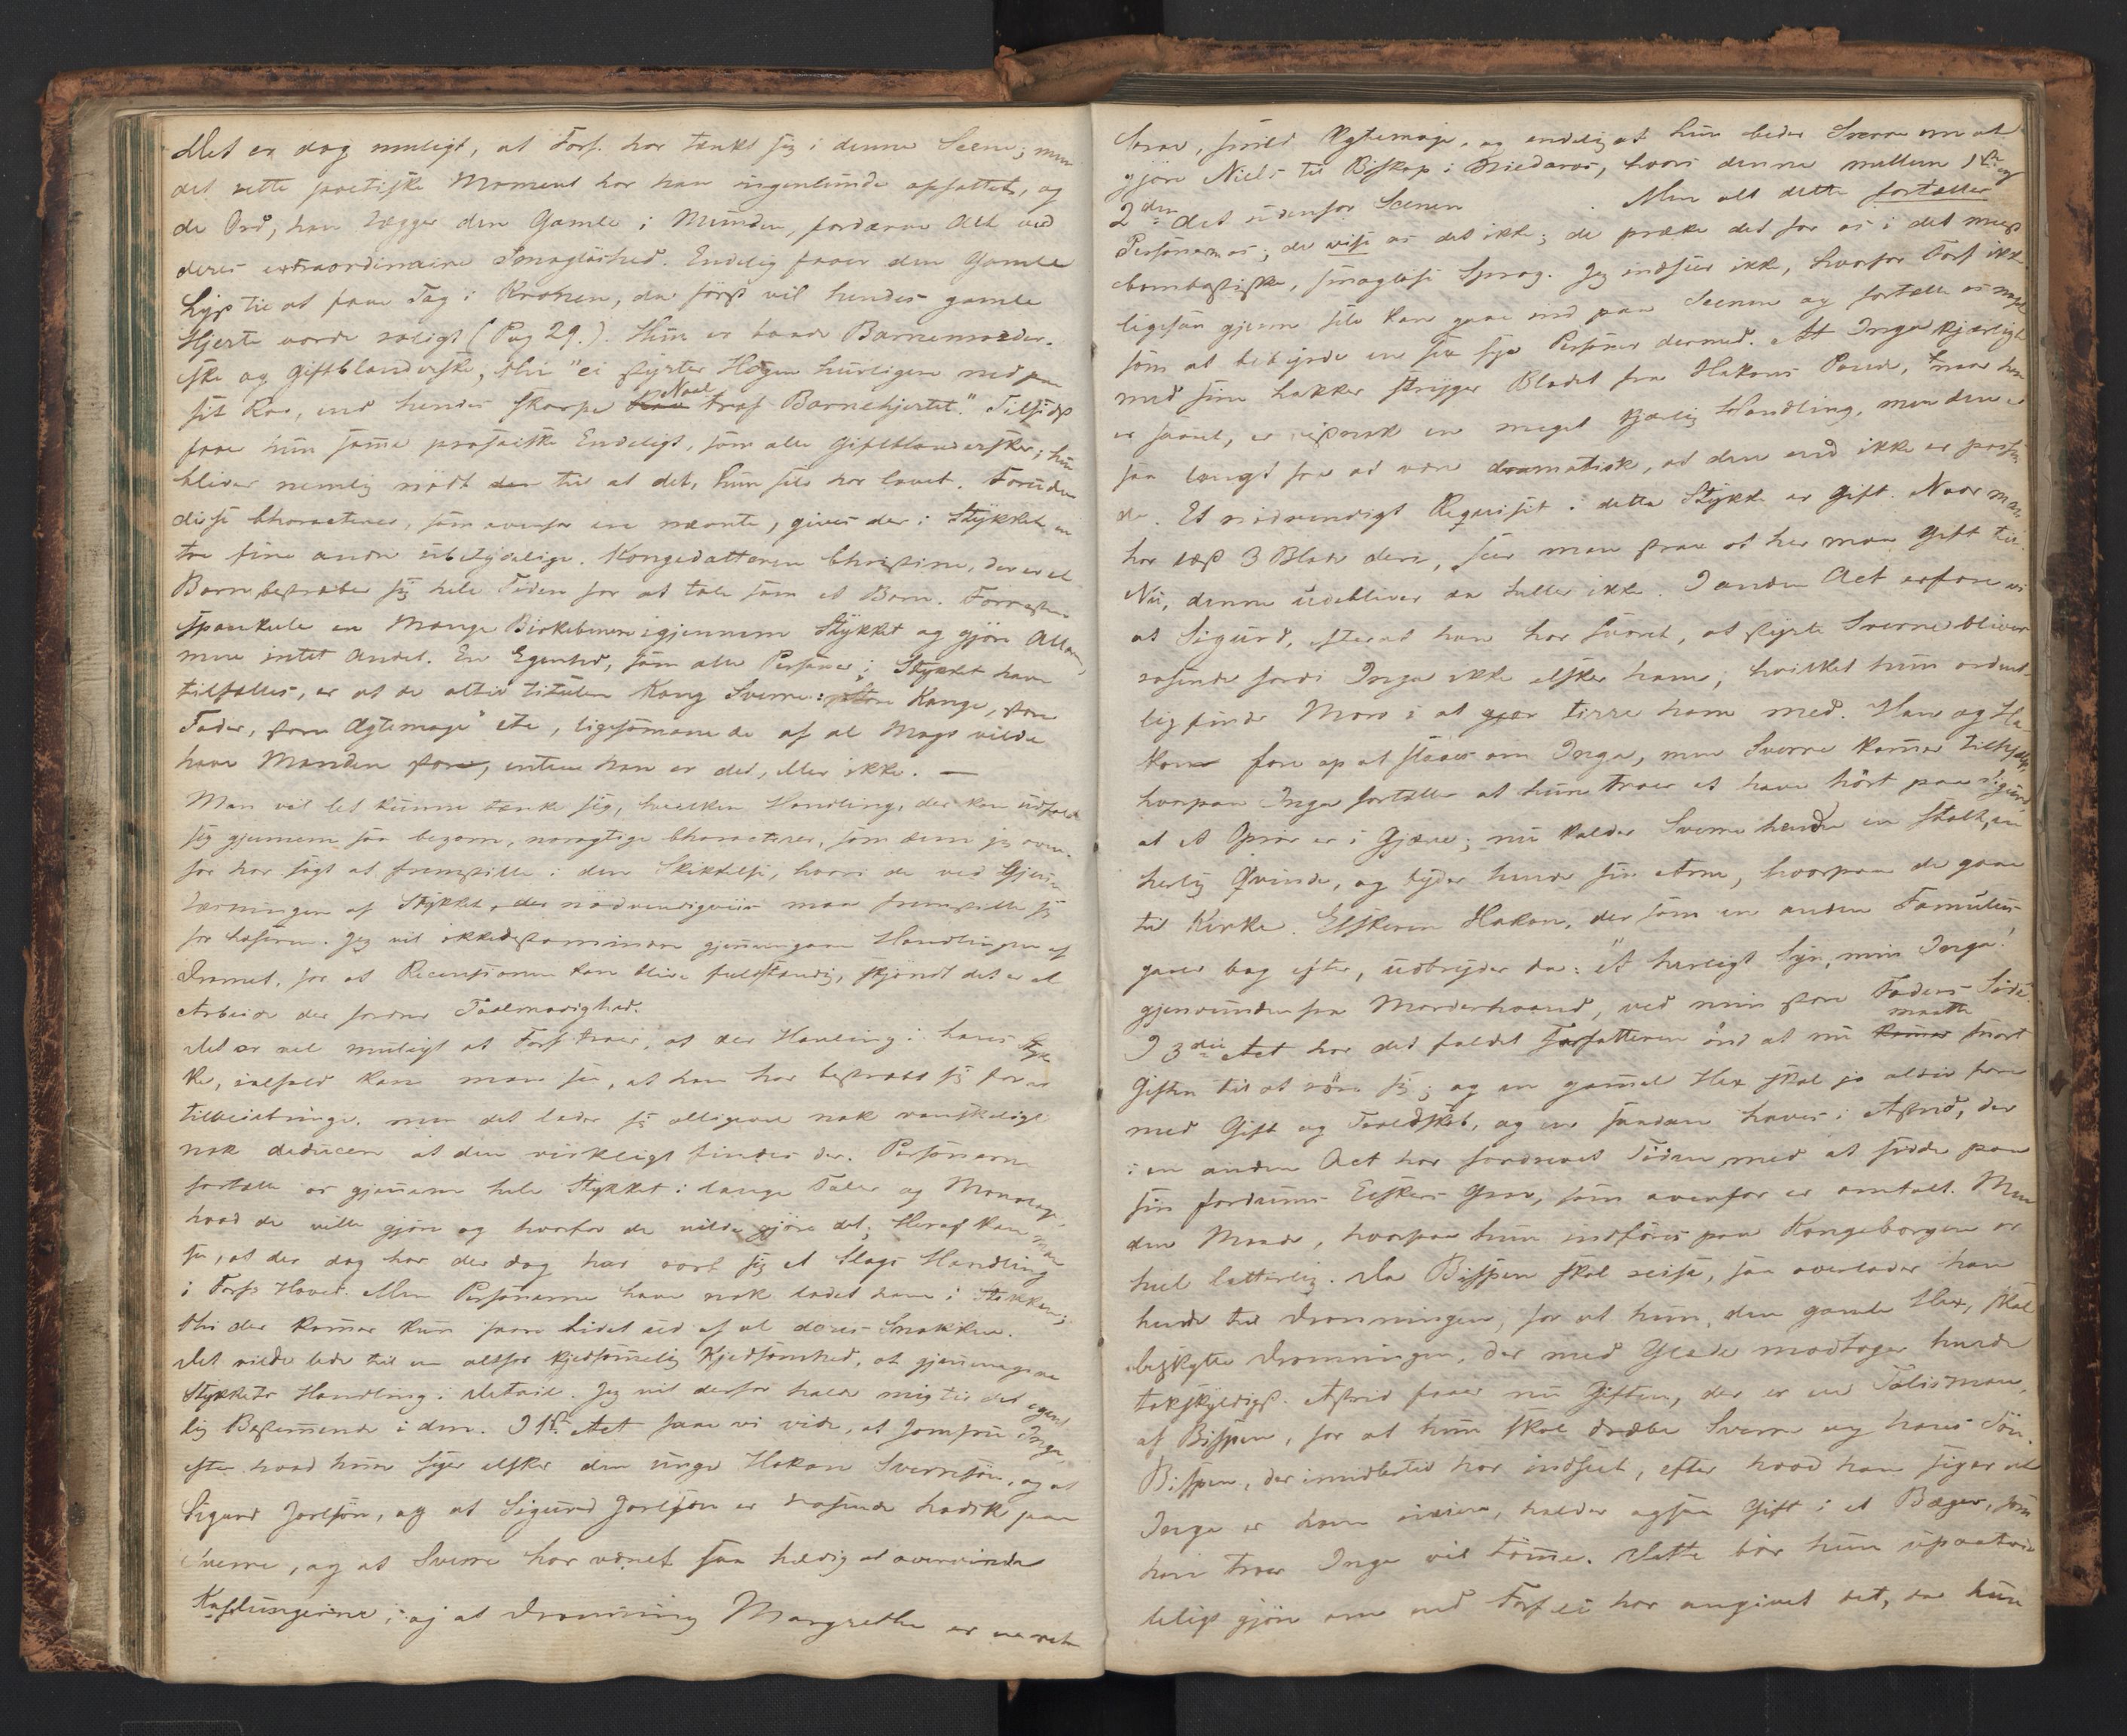 Det er dog muligt, at Forf. har tænkt sig i denne Scene; men
det rette poetiske Moment har han ingenlunde opfattet, og
de Ord, han lægger den Gamle i Munden, fordærve Alt ved
deres extraordinaire Smagløshed. Endelig faaer den Gamle
Lyst til at faae Tag i Kronen, da först vil hendes gamle
Hjerte vorde roligt (Pag 29.). Hun er baade Barnemorder-
ske og Giftblanderske, thi "ei styrter Høgen hurtigere ned paa
sit Rov, end hendes skarpe Naal traf Barnehjertet." Tilsidst
faaer hun samme prosaiske Endeligt, som alle Giftblandersker; hun
bliver nemlig nödt til at det, hun selv har lavet. Foruden
disse Characterer, som ovenfor ere nævnte, gives der i Stykket en
tre fire andre ubetydelige. Kongedatteren Christine, der er et
Barn bestræber sig hele Tiden for at tale som et Barn. Forresten
spankulere en Mængde Birkebenere igjennem Stykket og gjöre
intet Andet. En Egenhed, som alle Personer i Stykket have
tilfælles, er at de altid titulere Kong Sverre: store Konge, store
Fader, store Ægtemage" etc, ligesom de af al Magt vilde
have Manden stor, enten han er det, eller ikke. —
Man vil let kunne tænke sig, hvilken Handling, der kan udfolde
sig gjennem saa bizarre, Characterer, som dem jeg oven-
for har sögt at fremstille i den Skikkelse, hvori de ved Gjennem-
læsningen af Stykket, nödvendigviis maa fremstille sig
for Læseren. Jeg vil gjennemgaae Handlingen af
Dramet, for at Recensionen kan blive fuldstændig, skjöndt det er et
Arbeide der fordrer Taalmodighed.
Det er vel muligt at Forf troer, at der Handling i hans Styk
ke, ialfald kan man see, at han har bestræbt sig for at
tilveiebringe, men det lader sig alligevel nok vanskeligt
nok deducere at den virkeligt findes der. Personerne
fortælle os gjennem hele Stykket i lange Taler og Monologer
hvad de ville gjöre og hvorfor de vilde gjöre det; Heraf kan man
see, at der dog har der dog har rört sig et Slags Handling
i Forfs Hoved. Men Personerne have nok ladet den i Stikken;
thi der kommer kun saare lidet ud af al deres Snakken.
Det vilde lede til en altfor kjedsommelig Kjedsomhed, at gjennemgaae
Stykkets Handling i Detail. Jeg vil derfor holde mig til det egent
lig Bestemmende i den. I 1ste Act faae vi vide, at Jomfru Inga,
efter hvad hun siger elsker den unge Hakon Sverresön, og at
Sigurd Jarlsön, og at Sigurd Jarlsön er rasende hadsk paa
Sverre, og at Sverre har været saa heldig at overvinde
Kuflungerne; og at Dronning Margrethe er en
Sverres Ægtemage, og endelig at hun beder Sverre om at
gjöre Niels til Biskop i Nidaros, hvori denne mellem 1ste og
2den Act udenfor Scenen. Men alt dette fortæller
Personerne os; de vise os det ikke; de præke det for os i det meest
bombastiske, smaglöse Sprog. Jeg indseer ikke, hvorfor Forf ikke
ligesaa gjerne selv kan gaae ind paa Scenen og fortælle os noget
som at bebyrde en fem sex Personer dermed. At Inga kjærligt
med sine Lokker stryger Blodet fra Hakons Pande, naar han
er saaret, er vistnok en meget kjærlig Handling, men den er
saa langt fra at være dramatisk, at den end ikke er passen
de. Et nödvendigt Reqvisit i dette Stykke er Gift. Naar man
har læst 3 Blade deri, seer man strax at her maa Gift til.
Nu, denne udebliver da heller ikke. I anden Act erfare vi
at Sigurd, efterat han har svoret, at styrte Sverre bliver
rasende fordi Inga ikke elsker ham; hvilket hun ordent-
lig finder Moro i at tirre ham med. Han og Ha
kon fare op at slaaes om Inga, men Sverre kommer tilhjælp,
hvorpaa Inga fortæller at hun troer at have hört paa Sigurd
at et Oprör er i Gjære; nu kalder Sverre hende en stolt, en
herlig Qvinde, og byder hende sin Arm, hvorpaa de gaae
til Kirke. Elskeren Hakon, der som en anden Famulus
gaaer bag efter, udbryder da: "Et herligt Syn, min Inga!
gjenvunden fra Morderhaand, ved min store Faders Side"
I 3die Act har det faldet Forfatteren ind at nu maatte snart
Giften til at röre sig; og en gammel Hex skal jo altid fare
med Gift og Troldskab, og en saadan haves i Astrid, der
i en anden Act har fordrevet Tiden med at sidde paa
sin fordums Elskers Grav, som ovenfor er omtalt. Men
den Maade, hvorpaa hun indföres paa Kongeborgen er
heel latterlig. Da Bispen skal reise, saa overlader han
hende til Dronningen, for at hun, den gamle Hex, skal
beskytte Dronningen, der med Glæde modtager hende
takskyldigst. Astrid faaer nu Giften, der er en Talisman,
af Bispen, for at hun skal dræbe Sverre og hans Sön.
Bispen, der imidlertid har indseet, efter hvad han siger at
Inga er ham, holder ogsaa Gift i et Bæger, som
han troer Inga vil tömme. Dette bör hun upaatviv
leligt gjöre om end Forf ei har angivet det, da hun